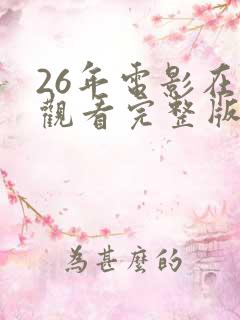 26年電影在
觀看完整版
為甚麼的